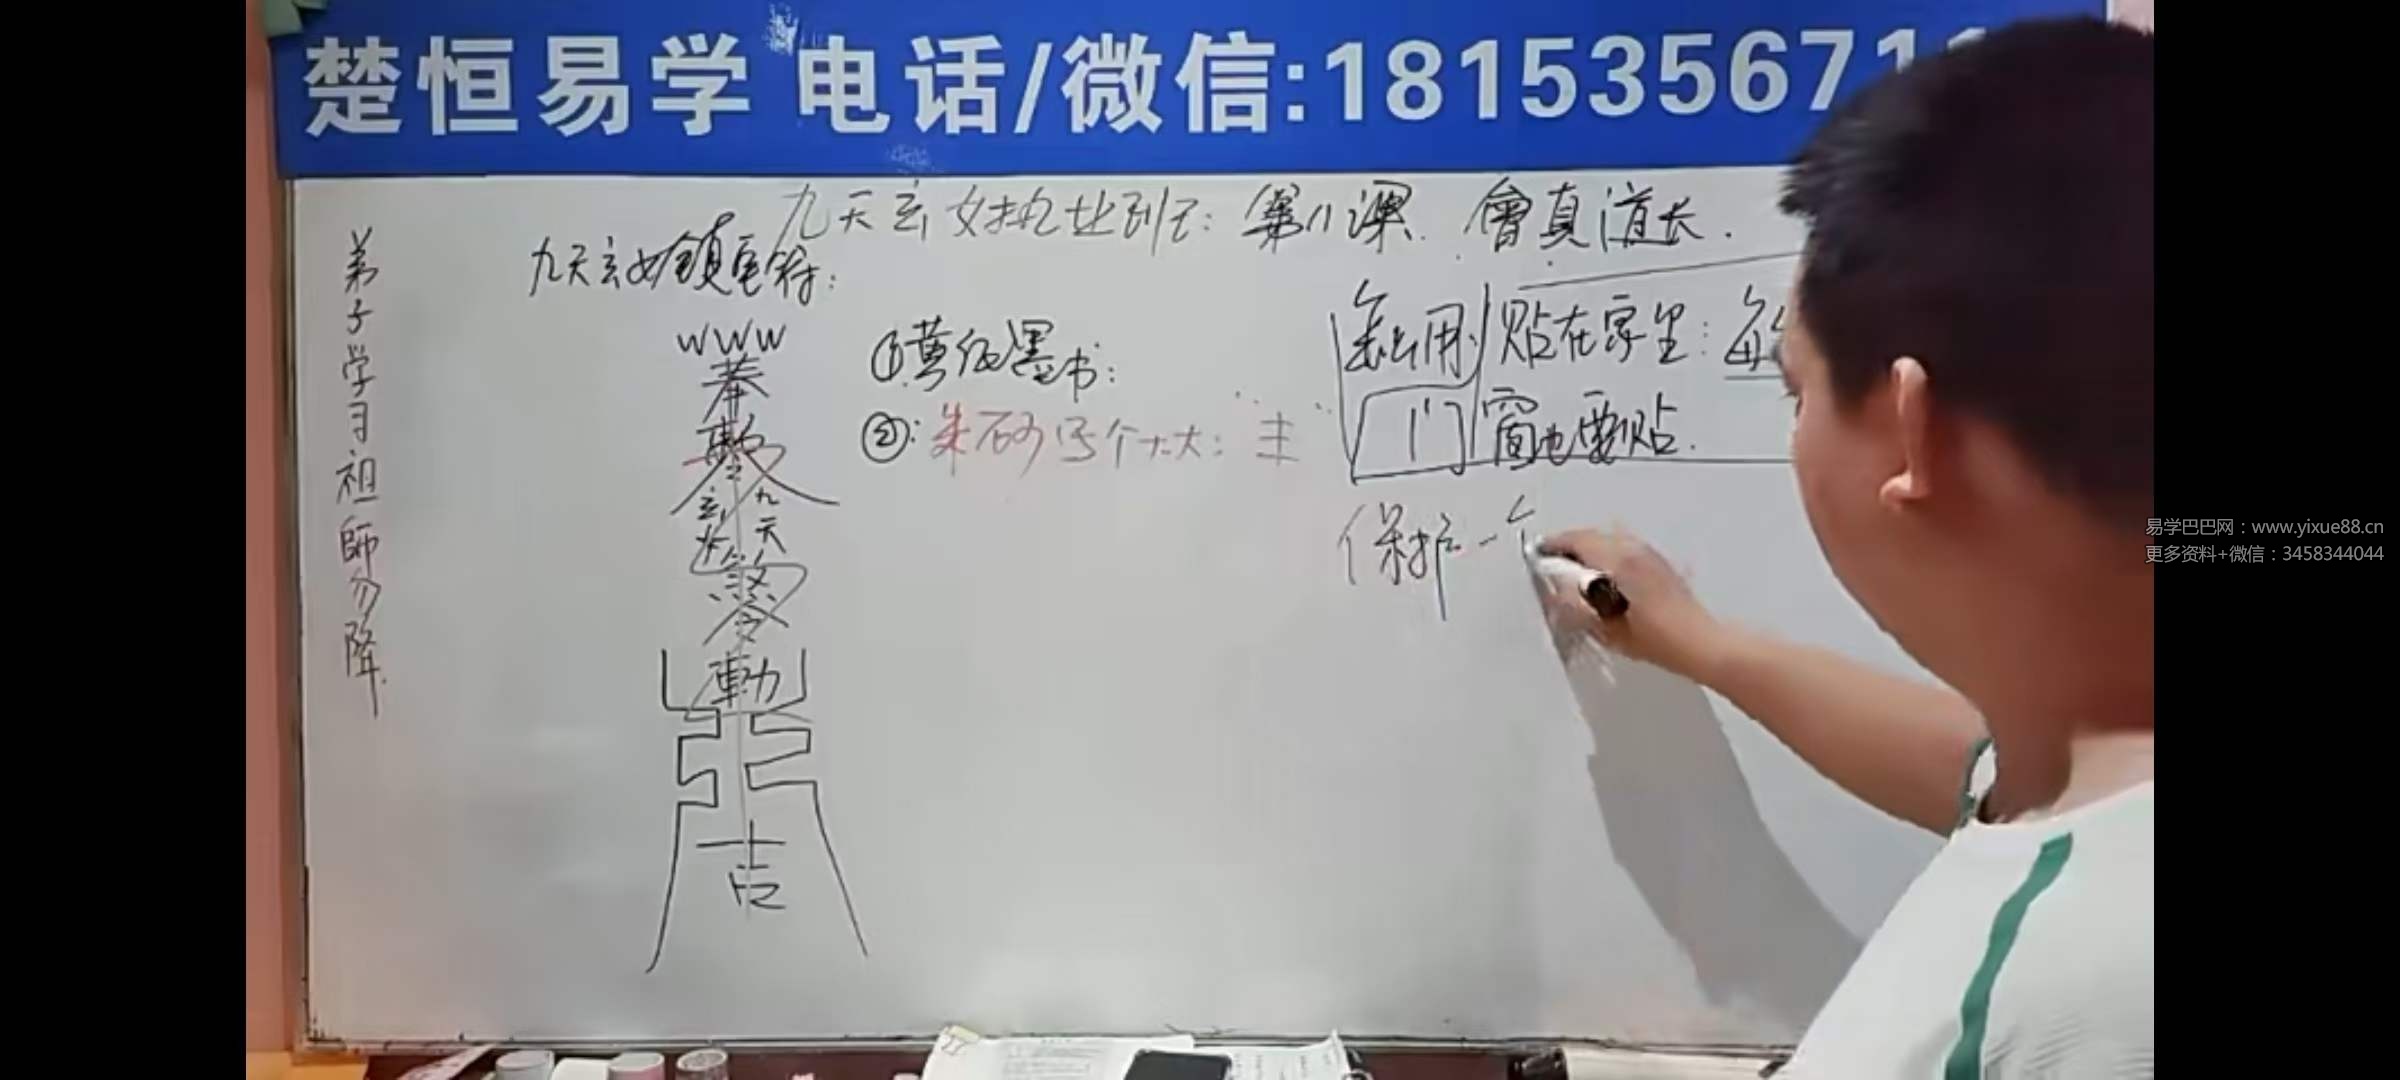 楚恒易学 电话/微信:181535671
九天玄女执业班: 第11课. 曾真道长.
九天玄女镇宅符:
弟子学习祖師勿降.
WWW
奉
敕
九天
玄女
煞
令
動
①黄纸墨书:
②:朱砂写个大大:
怎么用 贴在家里: 每
门 窗也要贴.
保护一个
易学巴巴网：www.yixue88.cn
更多资料+微信：3458344044